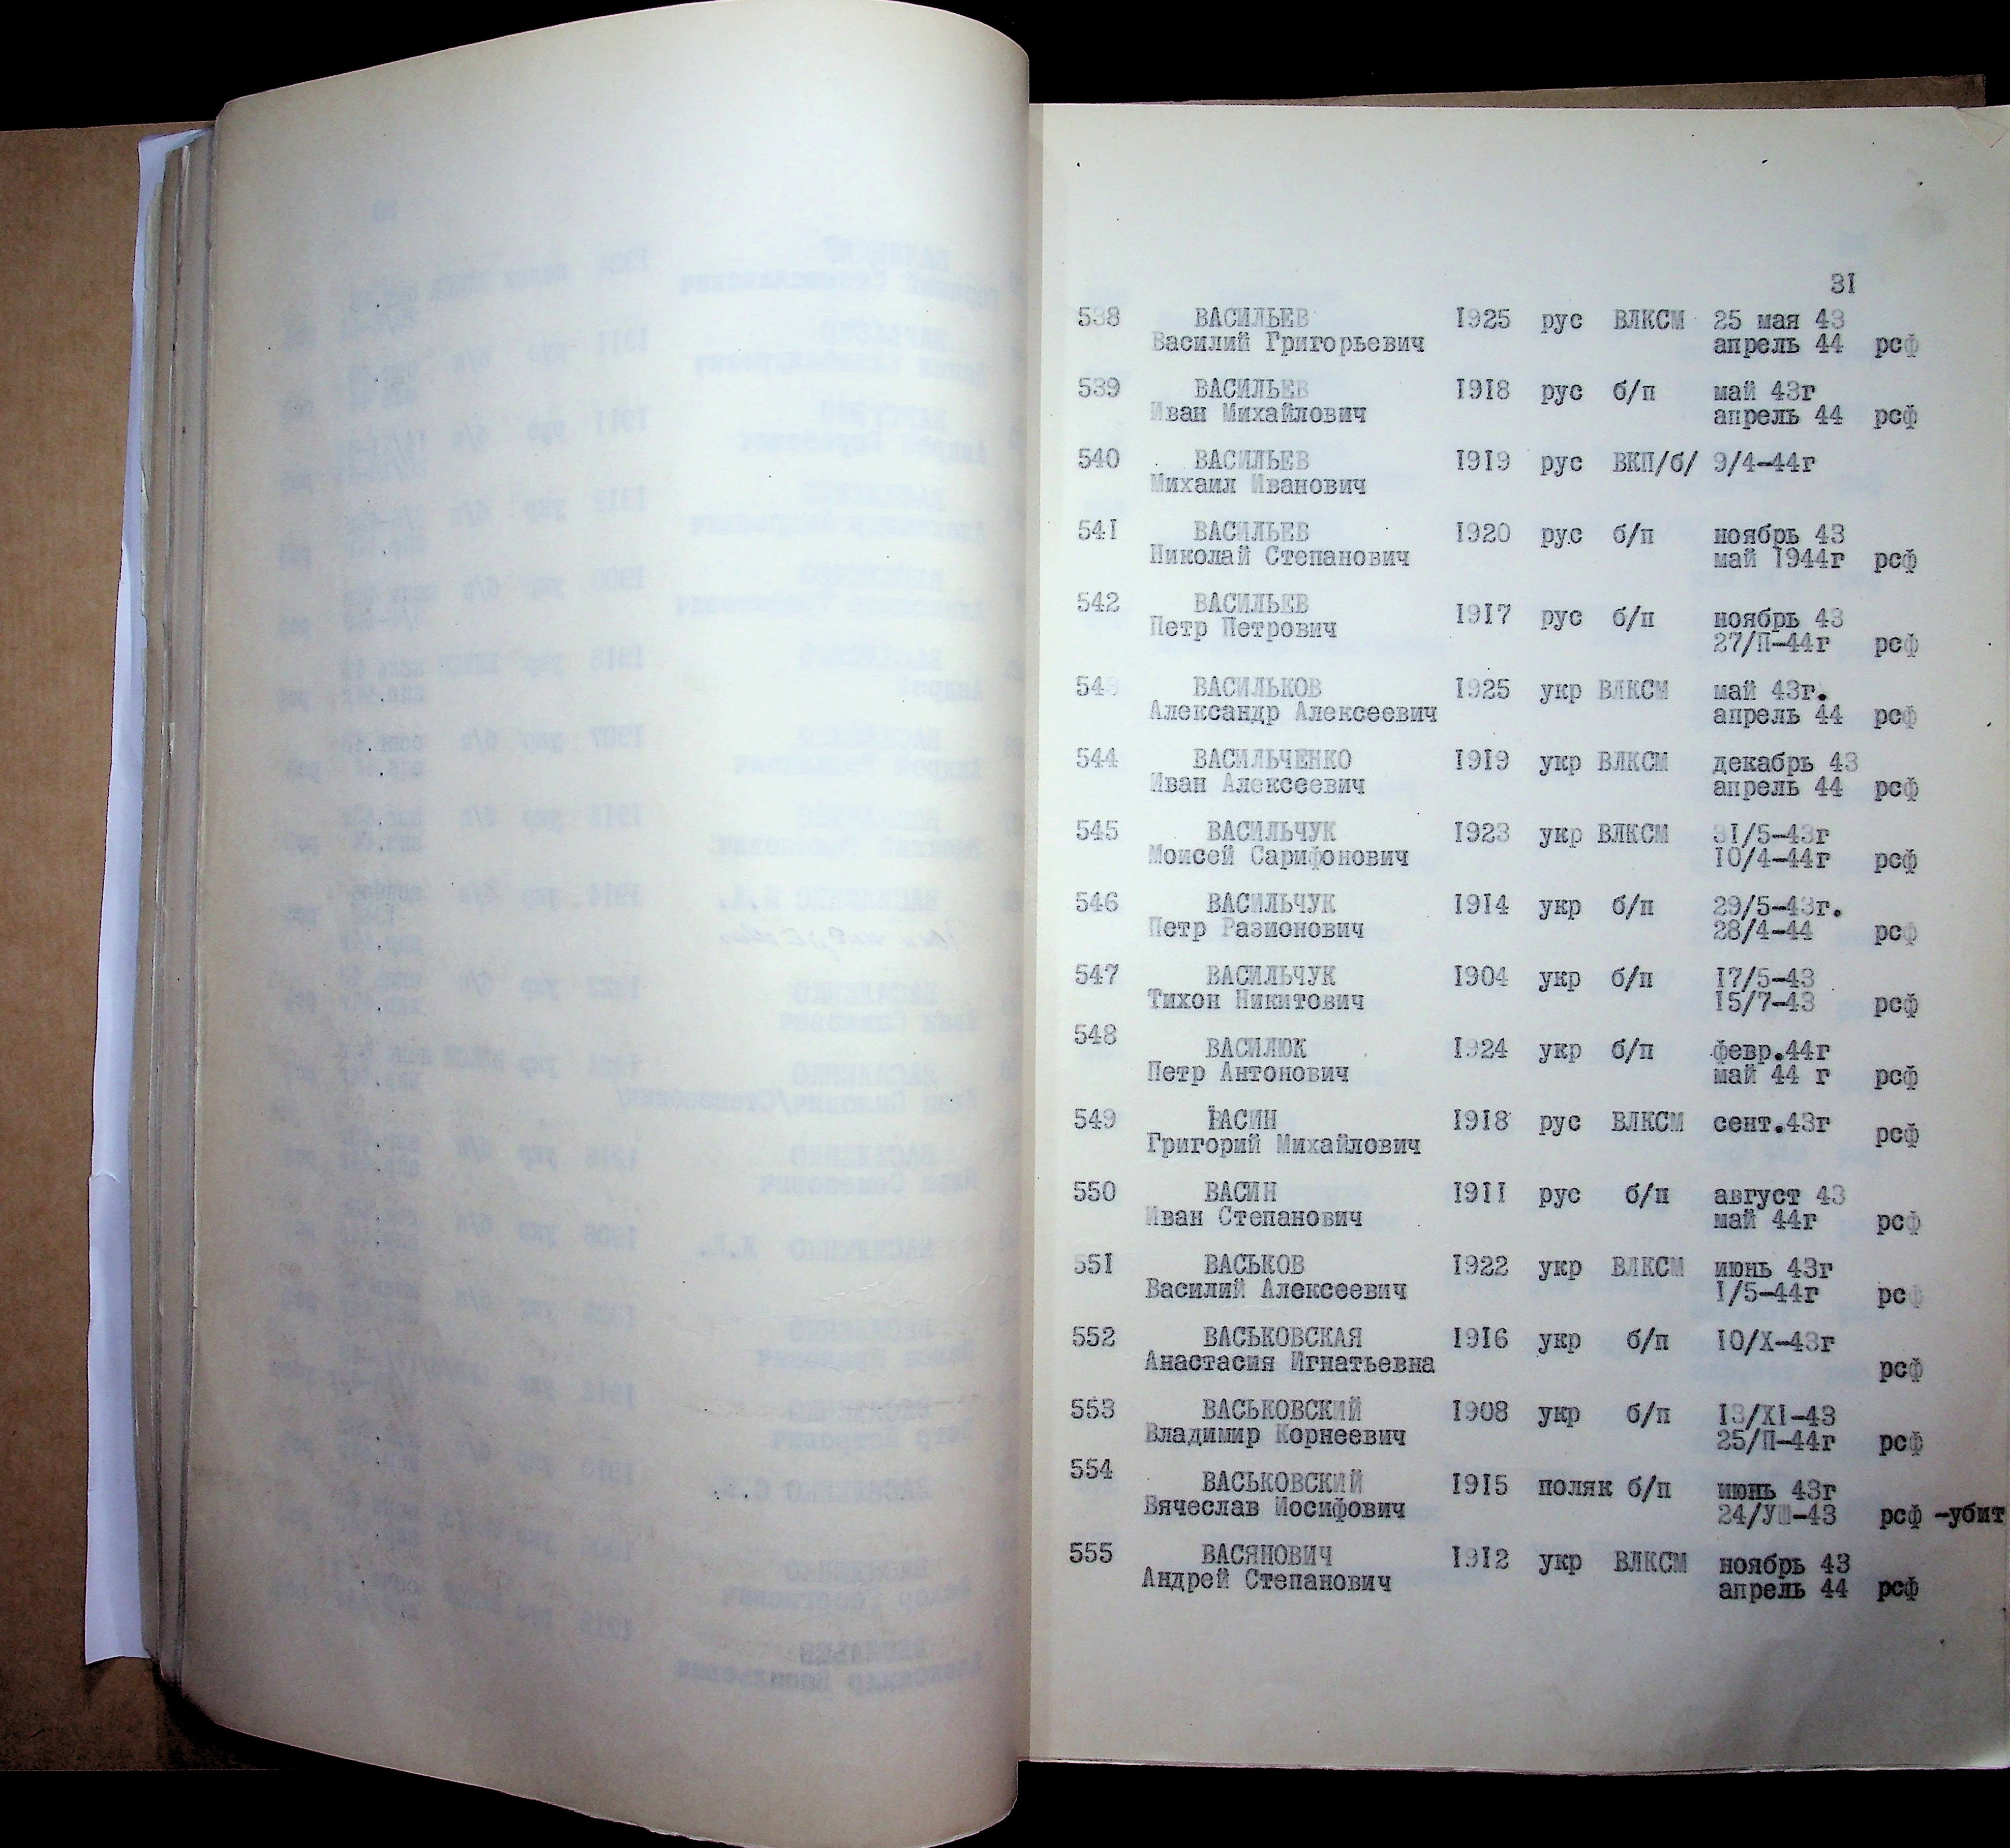 31
538 ВАСИЛЬЕВ 1925 рус ВЛКСМ 25 мая 43
Василий Григорьевич апрель 44 рсф
539 ВАСИЛЬЕВ 1918 рус б/п май 43г
Иван Михайлович апрель 44 рсф
540 ВАСИЛЬЕВ 1919 рус ВКП/б/ 9/4-44г
Михаил Иванович
541 ВАСИЛЬЕВ 1920 рус б/п ноябрь 43
Николай Степанович май 1944г рсф
542 ВАСИЛЬЕВ 1917 рус б/п ноябрь 43
Петр Петрович 27/П-44г рсф
543 ВАСИЛЬКОВ 1925 укр ВЛКСМ май 43г.
Александр Алексеевич апрель 44 рсф
544 ВАСИЛЬЧЕНКО 1919 укр ВЛКСМ декабрь 43
Иван Алексеевич апрель 44 рсф
545 ВАСИЛЬЧУК 1923 укр ВЛКСМ 31/5-43г
Моисей Сарифонович 10/4-44г рсф
546 ВАСИЛЬЧУК 1914 укр б/п 29/5-43г.
Петр Разионович 28/4-44 рсф
547 ВАСИЛЬЧУК 1904 укр б/п 17/5-43
Тихон Никитович 15/7-43 рсф
548 ВАСИЛЮК 1924 укр б/п февр.44г
Петр Антонович май 44 г рсф
549 ВАСИН 1918 рус ВЛКСМ сент.43г
Григорий Михайлович рсф
550 ВАСИН 1911 рус б/п август 43
Иван Степанович май 44г рсф
551 ВАСЬКОВ 1922 укр ВЛКСМ июнь 43г
Василий Алексеевич 1/5-44г рсф
552 ВАСЬКОВСКАЯ 1916 укр б/п 10/X-43г
Анастасия Игнатьевна рсф
553 ВАСЬКОВСКИЙ 1908 укр б/п 13/XI-43
Владимир Корнеевич 25/П-44г рсф
554 ВАСЬКОВСКИЙ 1915 поляк б/п июнь 43г
Вячеслав Иосифович 24/УШ-43 рсф -убит
555 ВАСЯНОВИЧ 1912 укр ВЛКСМ ноябрь 43
Андрей Степанович апрель 44 рсф